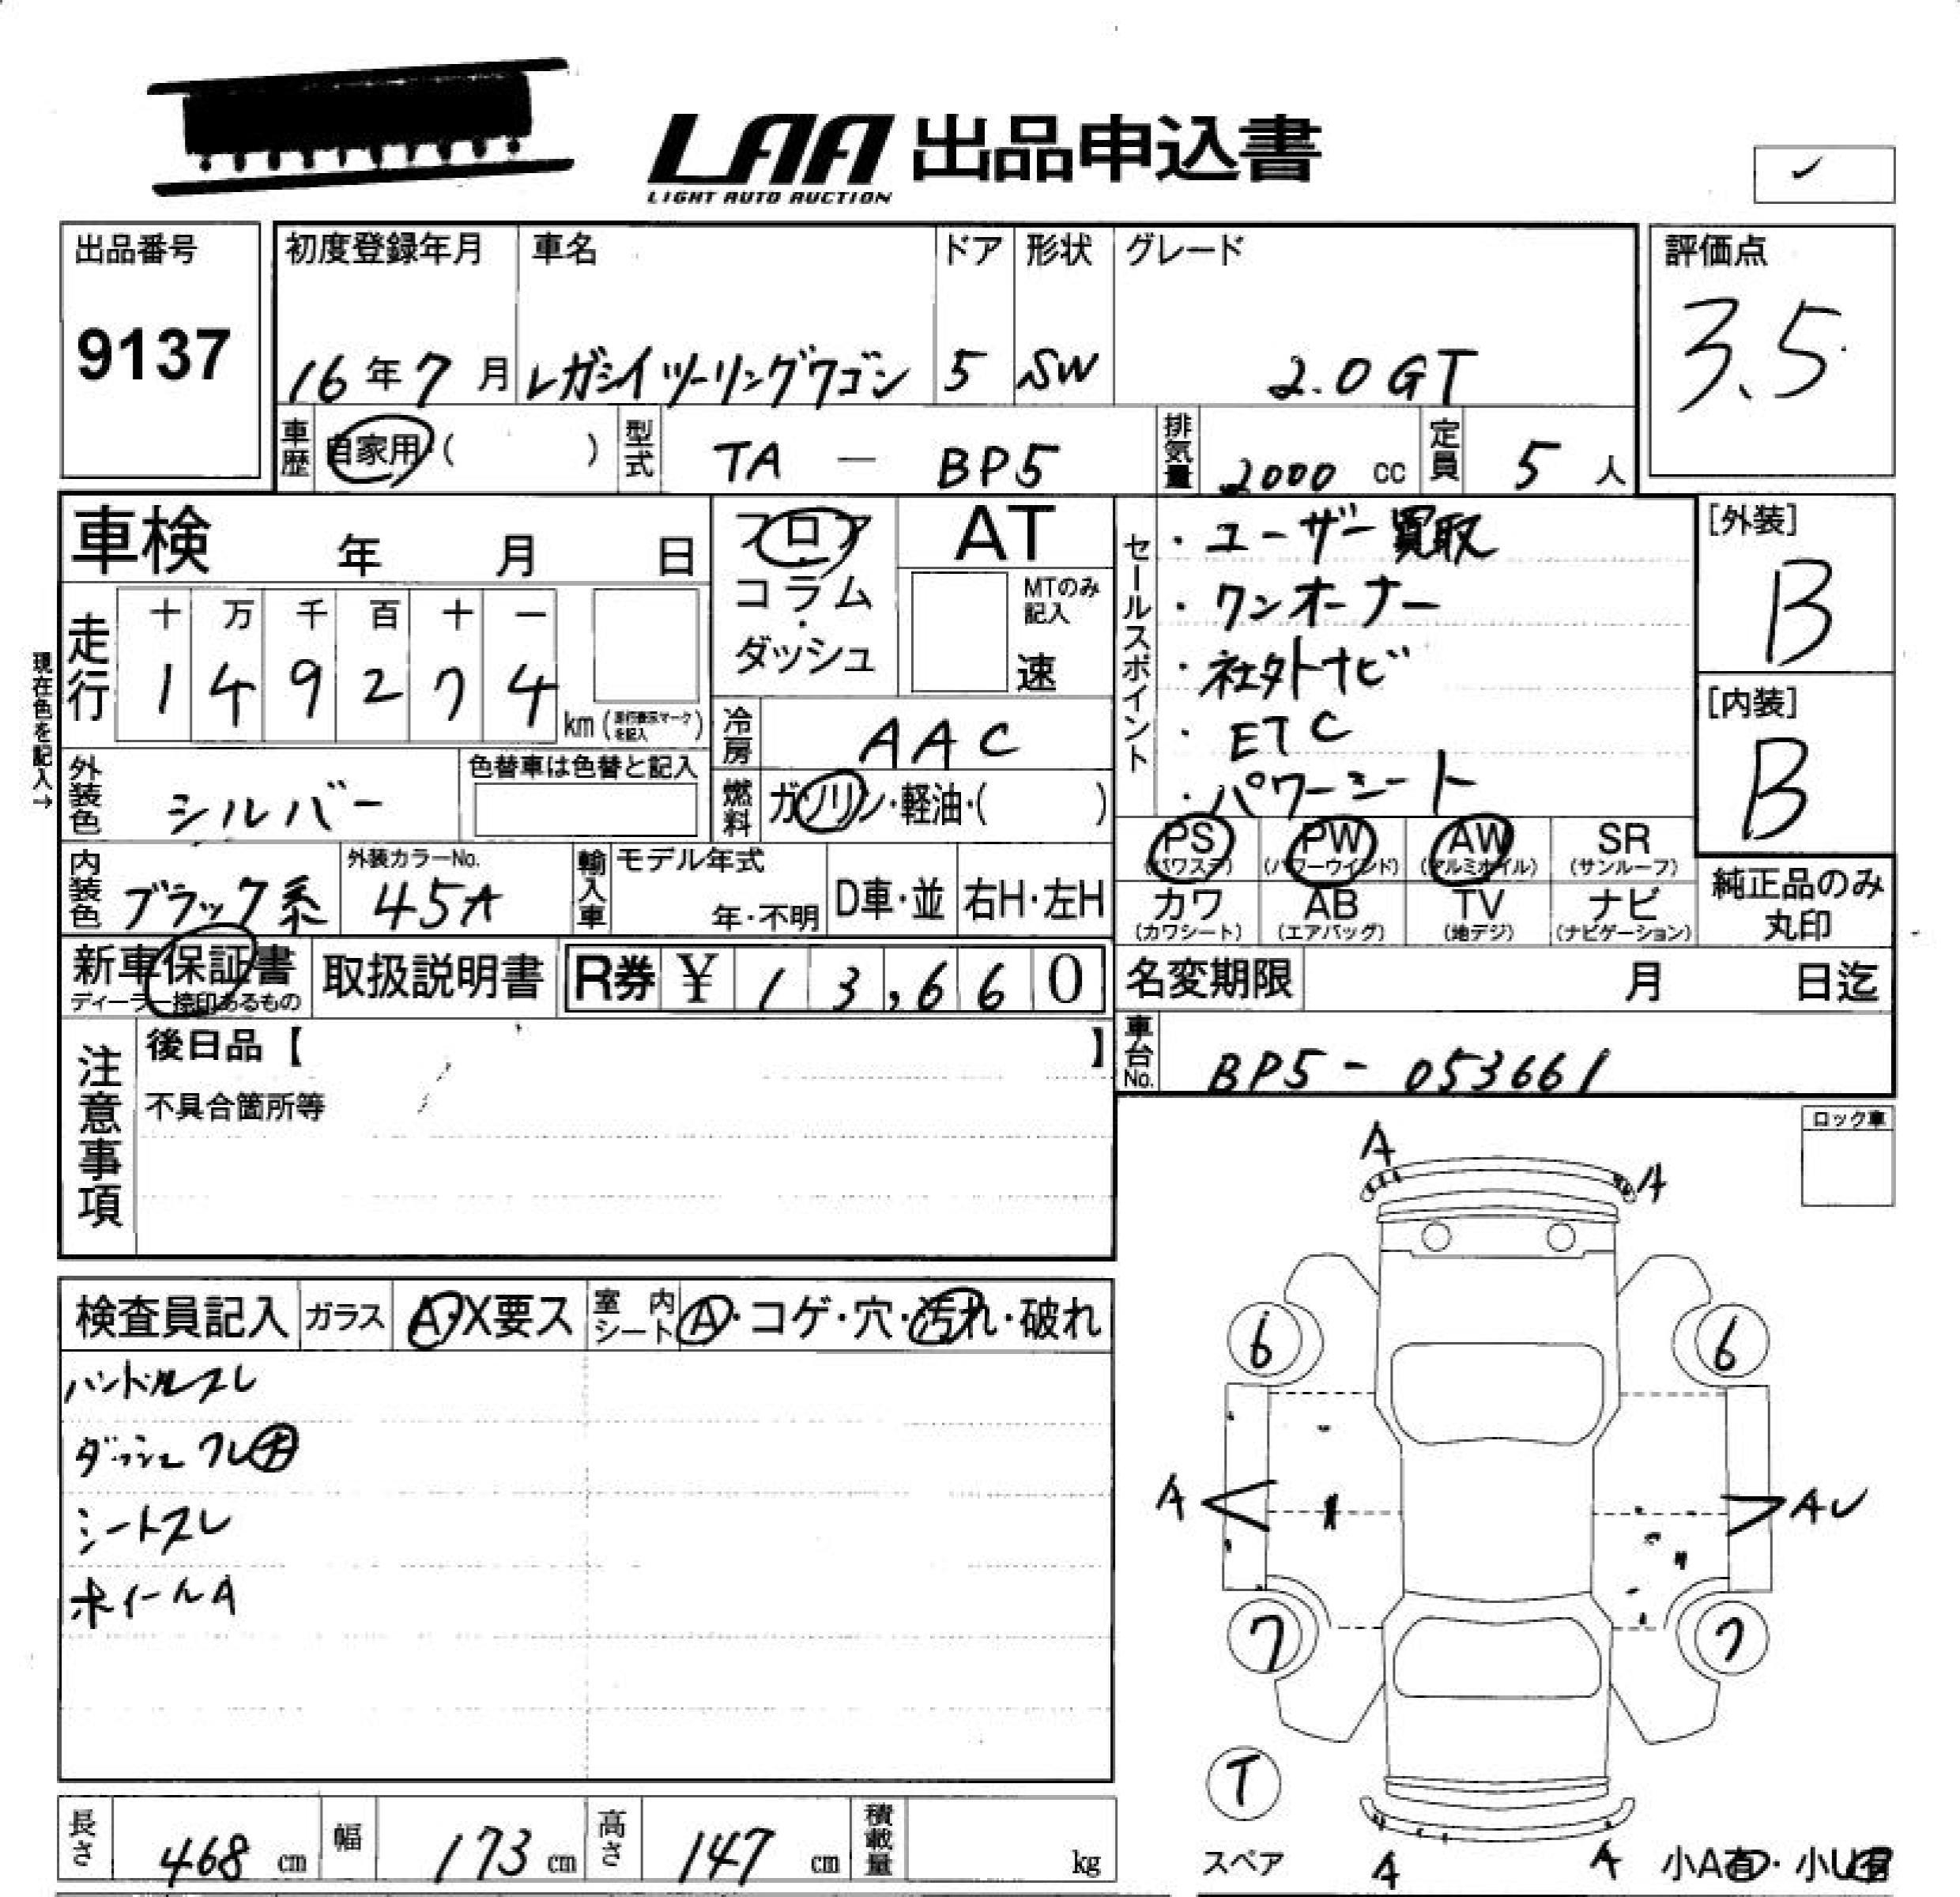 LAA 出品申込書
LIGHT AUTO AUCTION
出品番号
9137
初度登録年月
16年7月
車名
レガシイツーリングワゴン
ドア
5
形状
SW
グレード
2.0GT
評価点
3.5
車歴 自家用・( )
型式 TA — BP5
排気量 2000 cc
定員 5 人
車検 年 月 日
フロア
コラム
ダッシュ
AT
MTのみ
記入
速
セールスポイント
・ユーザー買取
・ワンオーナー
・社外ナビ
・ETC
・パワーシート
[外装]
B
[内装]
B
現在色を記入→
走行
十 万 千 百 十 一
1 4 9 2 7 4
km(走行表示マークを記入)
冷房 AAC
燃料 ガソリン・軽油・( )
外装色 シルバー
色替車は色替と記入
内装色 ブラック系
外装カラーNo.
45A
輸入車
モデル年式
年・不明
D車・並
右H・左H
PS
(パワステ)
PW
(パワーウインド)
AW
(アルミホイル)
SR
(サンルーフ)
カワ
(カワシート)
AB
(エアバッグ)
TV
(地デジ)
ナビ
(ナビゲーション)
純正品のみ
丸印
新車保証書
ディーラー捺印あるもの
取扱説明書
R券 ¥ 13,660
名変期限 月 日迄
車台No. BP5-053661
注意事項
後日品【 】
不具合箇所等
ロック車
検査員記入
ガラス A・X要ス
室内シート A・コゲ・穴・汚れ・破れ
ハンドルスレ
ダッシュワレ
シートスレ
ホイールA
A
A
6
6
A
AU
7
7
T
スペア
A
A
小A有・小U有
長さ 468 cm
幅 173 cm
高さ 147 cm
積載量 kg